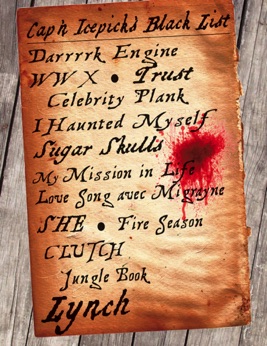 Cap'n Icepick's Black List
Darrrrk Engine
WWX • Trust
Celebrity Plank
I Haunted Myself
Sugar Skulls
My Mission in Life
Love Song avec Migrayne
SHE • Fire Season
CLUTCH
Jungle Book
Lynch